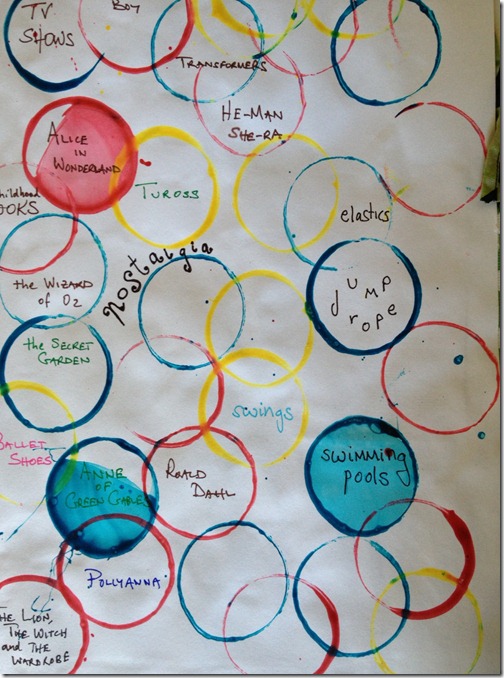 TV
SHOWS
BOY
TRANSFORMERS
HE-MAN
SHE-RA
ALICE
IN
WONDERLAND
TUROSS
childhood
OOKS
elastics
nostalgia
the WIZARD
of OZ
JUMP
rope
the SECRET
GARDEN
swings
BALLET
SHOES
ANNE
OF
GREEN GABLES
ROALD
DAHL
SWIMMING
POOLS
POLLYANNA
THE LION,
THE WITCH
and THE
WARDROBE